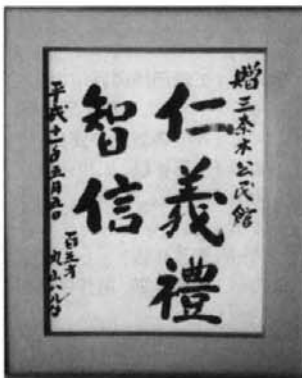 贈三奈木公民館
仁義禮
智信
平成十一年五月五日
百三才